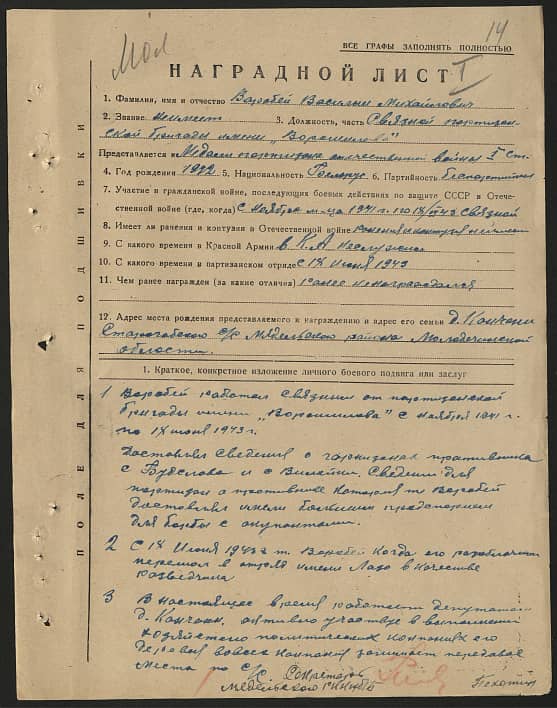 14
Мол
ВСЕ ГРАФЫ ЗАПОЛНЯТЬ ПОЛНОСТЬЮ
НАГРАДНОЙ ЛИСТ I
1. Фамилия, имя и отчество Варабей Василий Михайлович
2. Звание неимеет 3. Должность, часть Связной партизан-
ской бригады имени "Ворошилова"
Представляется Медали партизана отечественной войны I ст.
4. Год рождения 1922 5. Национальность Беларус 6. Партийность Беспартийный
7. Участие в гражданской войне, последующих боевых действиях по защите СССР в Отече-
ственной войне (где, когда) с Ноября м-ца 1941 г. по связной
8. Имеет ли ранения и контузии в Отечественной войне
9. С какого времени в Красной Армии в К.А неслужил
10. С какого времени в партизанском отряде с 18 Июня 1943
11. Чем ранее награжден (за какие отличия) ранее ненаграждался
12. Адрес места рождения представляемого к награждению и адрес его семьи д.
с/с Мядельского района Молодечинской
области.
1. Краткое, конкретное изложение личного боевого подвига или заслуг
1 Варабей работал связным от партизанской
бригады имени "Ворошилова" с Ноября 1941 г.
по июня 1943 г.
Доставлял сведения о гарнизонах противника
с Будслова и с Вилейки. Сведения для
партизан о противнике которые т. Варабей
доставлял имели большим
для борьбы с окупантами.
2 С 18 Июня 1943 г т. Варабей когда его разоблачили
перешол в отряд имени Лазо в качестве
разведчика
3 В настоящее время работает депутатом
д. активно участвует в выполнении
хозяйственно политических кампаниях его
деревня вовсех кампаниях занимает передовые
места по с/с Секретарь
Мядельского
ПОЛЕ ДЛЯ ПОДШИВКИ